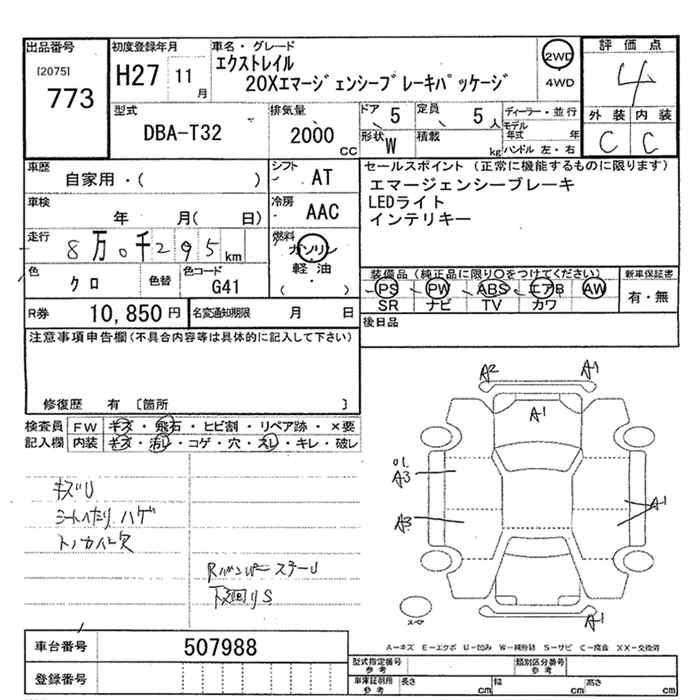 出品番号
[2075]
773
初度登録年月
H27 11月
車名・グレード
エクストレイル
20Xエマージェンシーブレーキパッケージ
2WD
4WD
評価点
4
外装 内装
C C
型式
DBA-T32
排気量
2000 CC
ドア 5
定員 5人
形状 W
積載 kg
ディーラー・並行
モデル年式 年
ハンドル 左・右
車歴
自家用・( )
シフト AT
車検
年 月( 日)
冷房 AAC
走行
8万0千295km
燃料
ガソリン
軽油
( ・ )
色
クロ
色替
色コード
G41
セールスポイント (正常に機能するものに限ります)
エマージェンシーブレーキ
LEDライト
インテリキー
装備品(純正品に限り○をつけてください)
PS PW ABS エアB AW
SR ナビ TV カワ
新車保証書
有・無
R券 10,850円
名変通知期限 月 日
後日品
注意事項申告欄(不具合内容等は具体的に記入して下さい)
修復歴 有 〔箇所 〕
検査員記入欄
FW キズ・飛石・ヒビ割・リペア跡・×要
内装 キズ・汚レ・コゲ・穴・スレ・キレ・破レ
キズU
シートヘタリ ハゲ
トノカバー欠
RバンパーステーU
下廻りS
A2 A1
A1
A3
A3
A1
A1
スペア
A－キズ E－エクボ U－凹み W－補修跡 S－サビ C－腐食 XX－交換済
車台番号 507988
登録番号
型式指定番号
参考
類別区分番号
参考
車庫証明用
参考
長さ cm 幅 cm 高さ cm